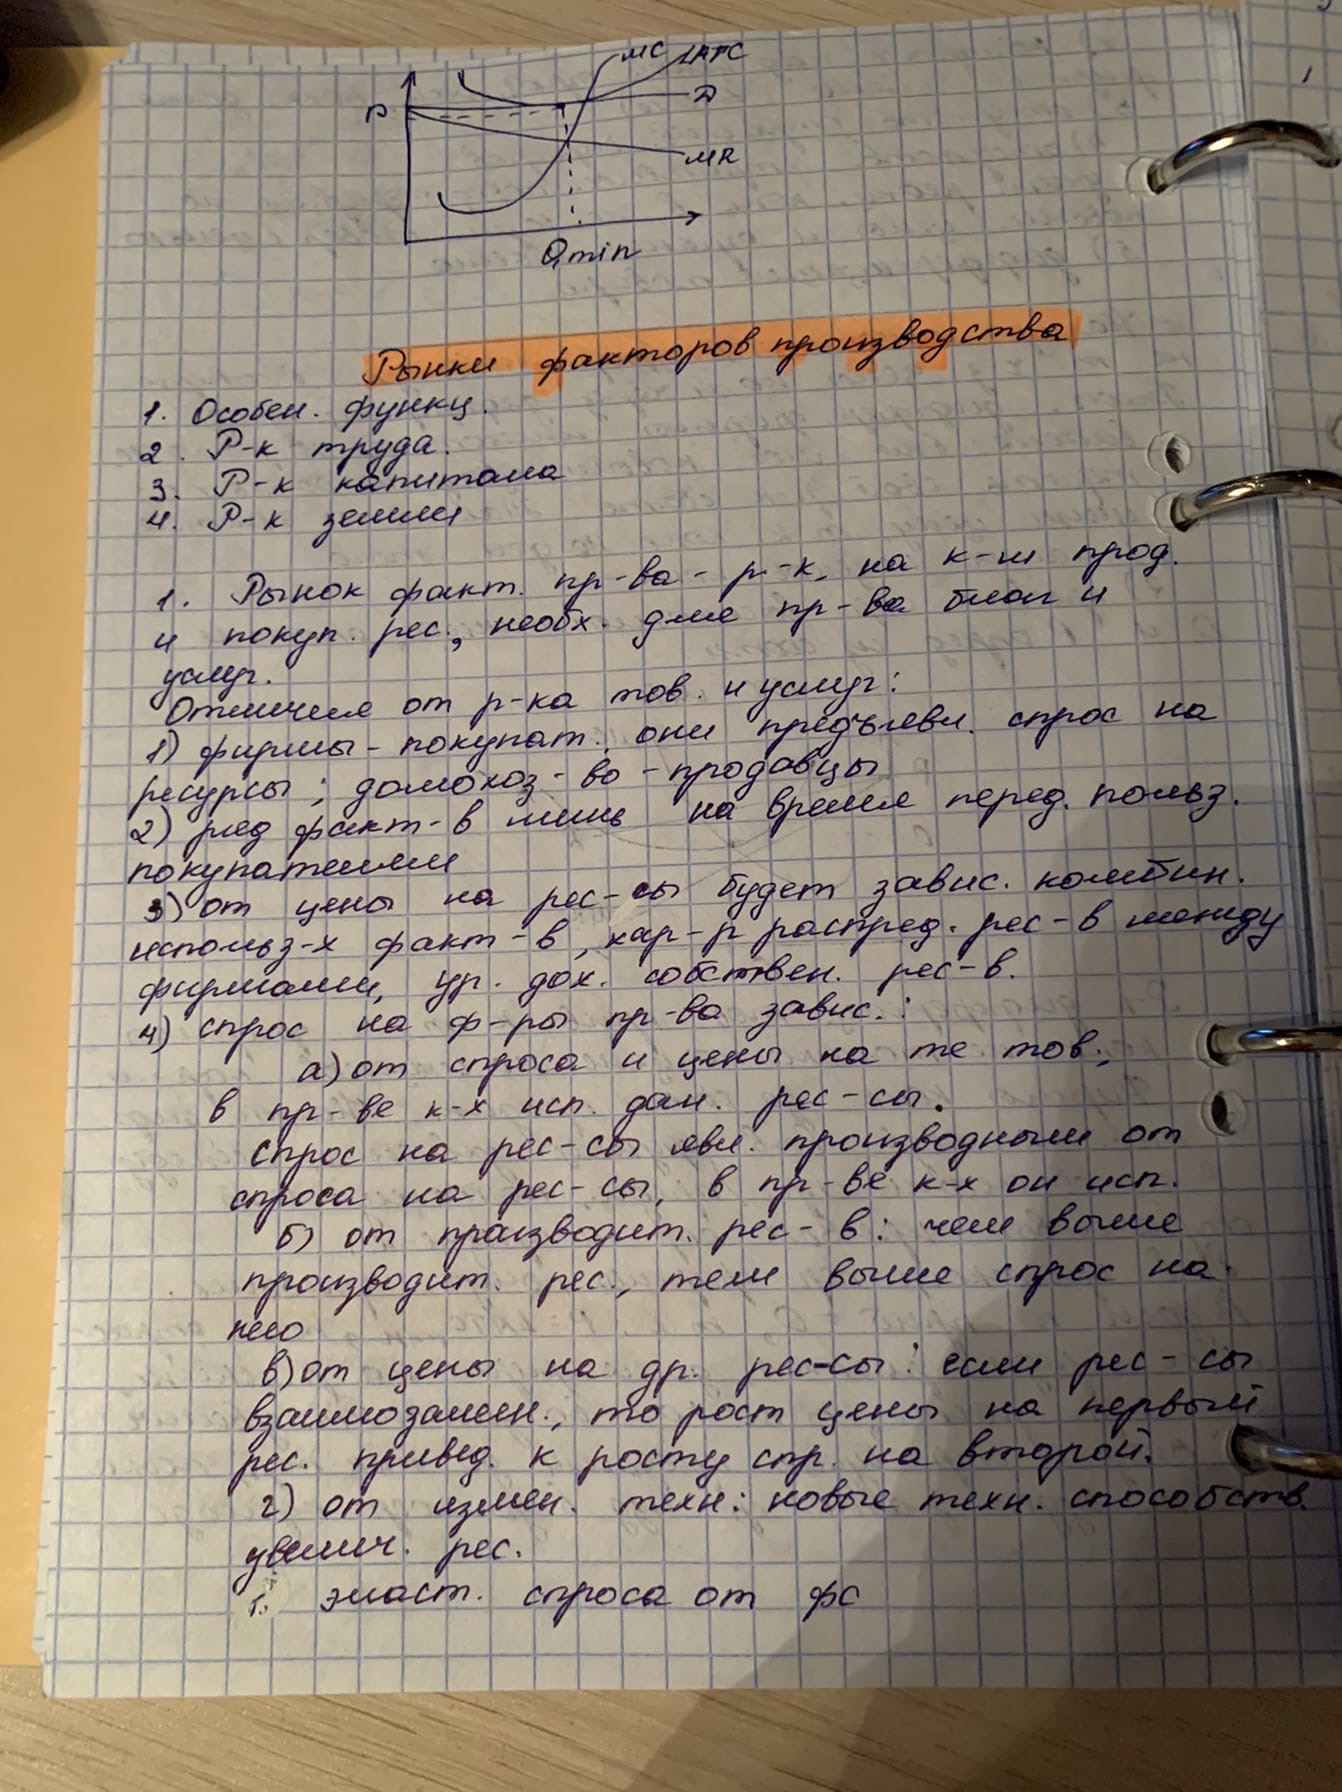 MC LATC
P D
MR
Qmin
Рынки факторов производства
1. Особен. функц.
2. Р-к труда.
3. Р-к капитала
4. Р-к земли
1. Рынок факт. пр-ва - р-к, на к-м прод.
и покуп. рес., необх. для пр-ва благ и
услуг.
Отличия от р-ка тов. и услуг:
1) фирмы - покупат., они предъявл. спрос на
ресурсы; домохоз-во - продавцы
2) ряд факт-в лишь на время перед. польз.
покупателям
3) от цены на рес-сы будет завис. комбин.
использ-х факт-в, хар-р распред. рес-в между
фирмами, ур. дох. собствен. рес-в.
4) спрос на ф-ры пр-ва завис.:
а) от спроса и цены на те тов.,
в пр-ве к-х исп. дан. рес-сы.
Спрос на рес-сы явл. производным от
спроса на рес-сы, в пр-ве к-х он исп.
б) от производит. рес-в: чем выше
производит. рес., тем выше спрос на
него
в) от цены на др. рес-сы: если рес-сы
взаимозамен., то рост цены на первый
рес. привед. к росту спр. на второй.
г) от измен. техн: новые техн. способств.
увелич. рес.
эласт. спроса от фс